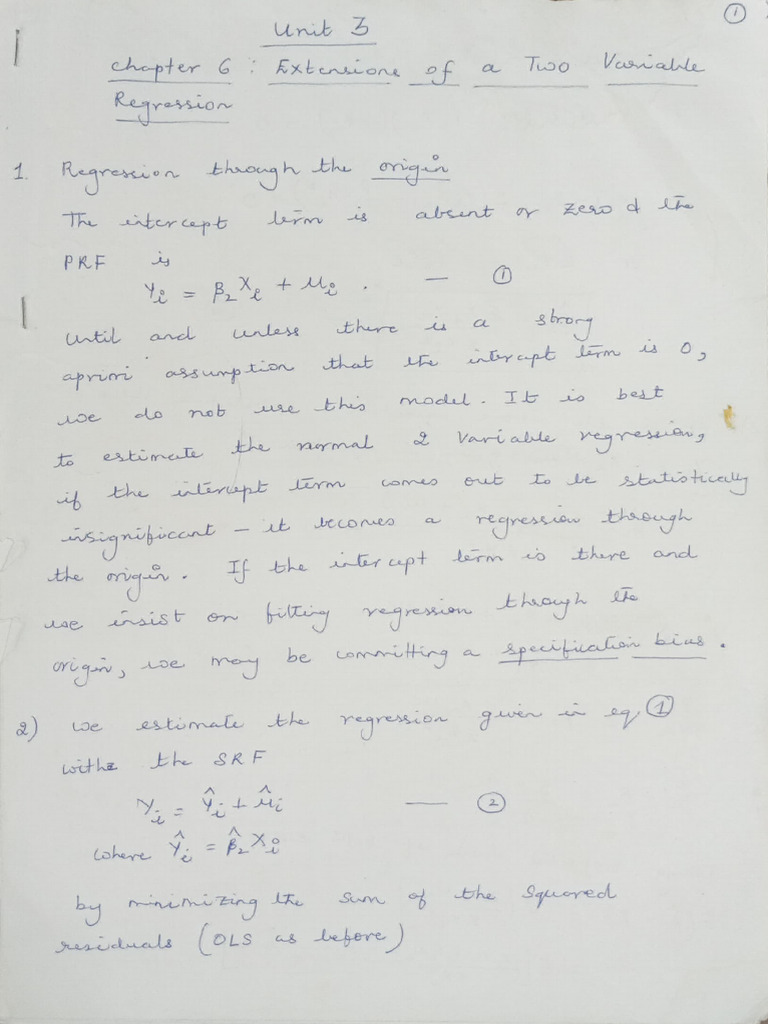 ①
Unit 3
Chapter 6 : Extensions of a Two Variable
Regression
1. Regression through the origin
The intercept term is absent or zero & the
PRF is
Yi = β₂Xi + μi . — ①
Until and unless there is a strong
apriori assumption that the intercept term is 0,
we do not use this model. It is best
to estimate the normal 2 variable regression,
if the intercept term comes out to be statistically
insignificant – it becomes a regression through
the origin. If the intercept term is there and
we insist on fitting regression through the
origin, we may be committing a specification bias.
2) We estimate the regression given in eq ①
with the SRF
Yi = Ŷi + μ̂i — ②
where Ŷi = β̂₂Xi
by minimizing the sum of the squared
residuals (OLS as before)